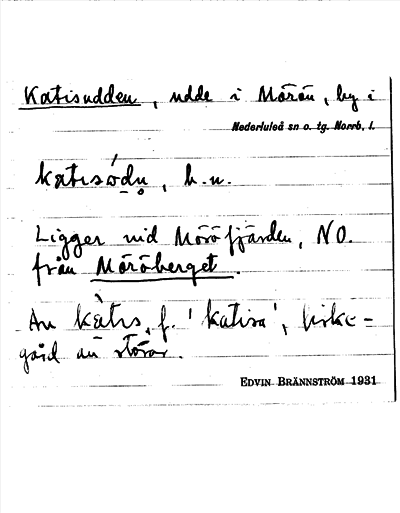 Katisudden, udde i Mörön, by i
Nederluleå sn o. tg. Norrb. l.
b.n.
Ligger vid Möröfjärden, NO.
från Möröberget.
Av kàtıs, f. 'katisa', fiske-
gård av störar.
EDVIN BRÄNNSTRÖM 1931